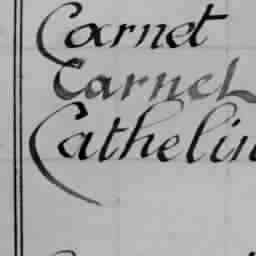 Carnet
Carnet
Cathelin